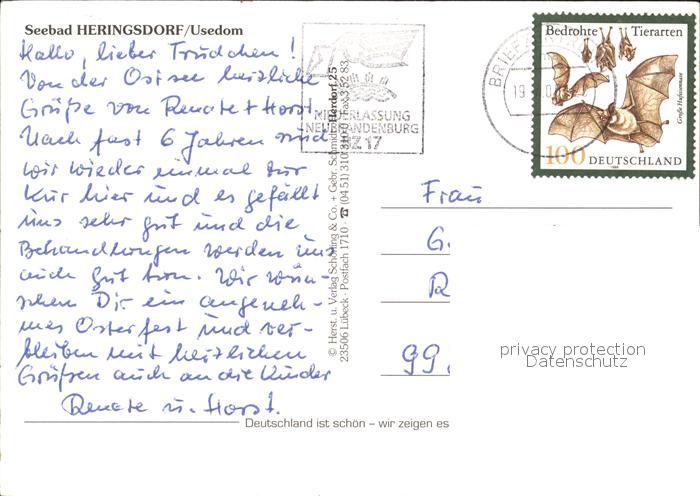 Seebad HERINGSDORF/Usedom
Hallo, lieber Trudchen!
Von der Ostsee herzliche
Grüße von Renate + Horst.
Nach fast 6 Jahren sind
wir wieder einmal zur
Kur hier und es gefällt
uns sehr gut und die
Behandlungen werden uns
auch gut tun. Wir wün-
schen Dir ein angeneh-
mes Osterfest und ver-
bleiben mit herzlichen
Grüßen auch an die Kinder
Renate u. Horst.
Deutschland ist schön – wir zeigen es
© Herst. u. Verlag Schöning & Co. + Gebr. Schmidt
23506 Lübeck · Postfach 1710 · ☎ (04 51) 310
Herdorf.25
NIEDERLASSUNG
NEUBRANDENBURG
BZ 17
BRIEF
19
Bedrohte Tierarten
Große Hufeisennase
100 DEUTSCHLAND
Frau
G.
R
99.
privacy protection
Datenschutz